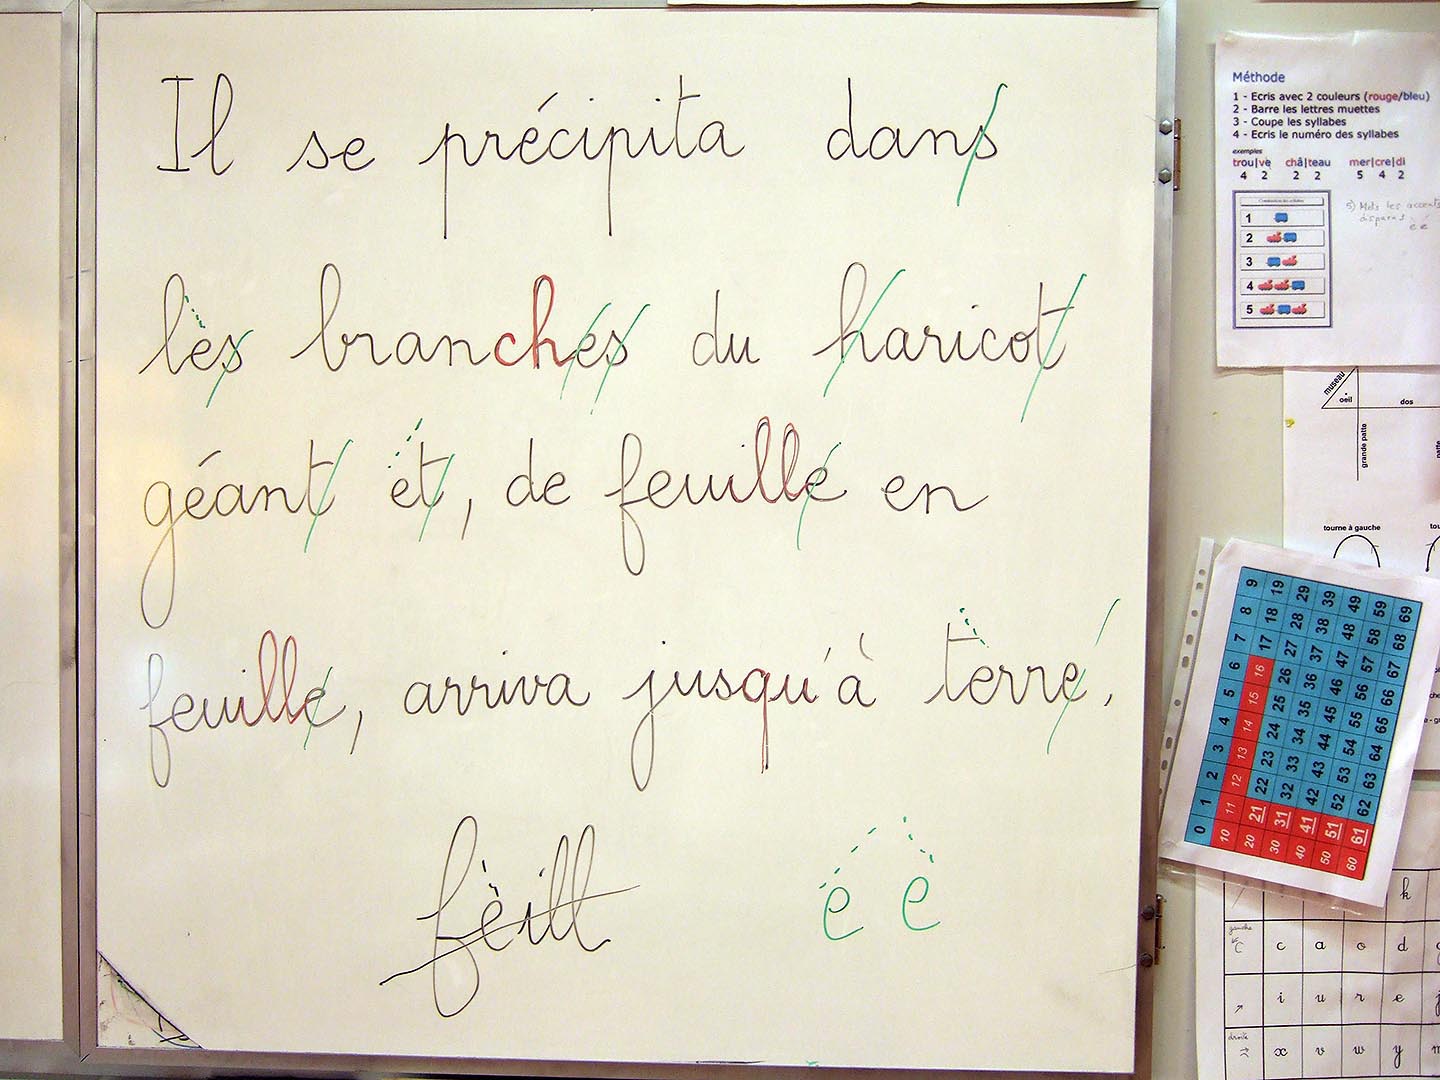 Il se précipita dans
les branches du haricot
géant et, de feuille en
feuille, arriva jusqu'à terre.
feill
é è
Méthode
1 - Ecris avec 2 couleurs (rouge/bleu)
2 - Barre les lettres muettes
3 - Coupe les syllabes
4 - Ecris le numéro des syllabes
exemples
trou|ve châ|teau mer|cre|di
4 2 2 2 5 4 2
5) Mets les accents
disparus
é è
1
2
3
4
5
museau
oeil
dos
grande patte
tourne à gauche
0 1 2 3 4 5 6 7 8 9
10 11 12 13 14 15 16 17 18 19
20 21 22 23 24 25 26 27 28 29
30 31 32 33 34 35 36 37 38 39
40 41 42 43 44 45 46 47 48 49
50 51 52 53 54 55 56 57 58 59
60 61 62 63 64 65 66 67 68 69
k
gauche c a o d
i u r e j
droite x v w y m